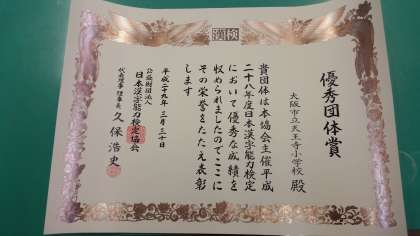 漢検
優秀団体賞
大阪市立天王寺小学校 殿
貴団体は本協会主催平成
二十八年度日本漢字能力検定
において優秀な成績を
収められましたのでここに
その栄誉をたたえ表彰
します
平成二十九年 三月三十日
公益財団法人
日本漢字能力検定協会
代表理事 理事長 久保浩史